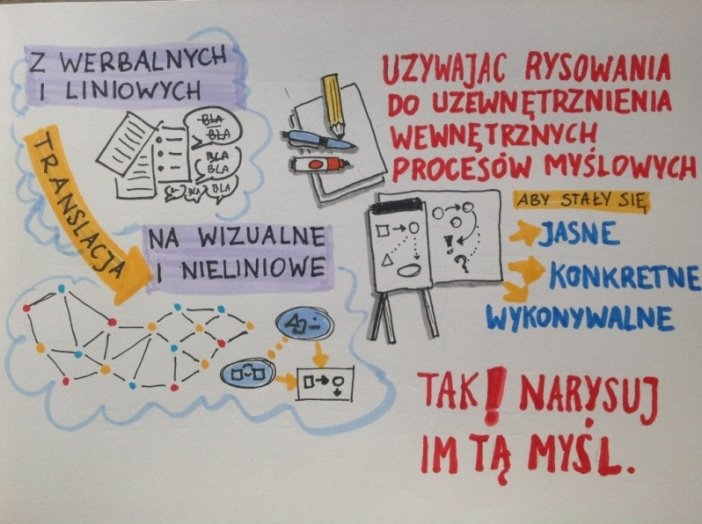 Z WERBALNYCH
I LINIOWYCH
BLA
BLA
BLA
BLA
BLA
BLA
TRANSLACJA
NA WIZUALNE
I NIELINIOWE
UZYWAJĄC RYSOWANIA
DO UZEWNĘTRZNIENIA
WEWNĘTRZNYCH
PROCESÓW MYŚLOWYCH
ABY STAŁY SIĘ
JASNE
KONKRETNE
WYKONYWALNE
TAK! NARYSUJ
IM TĄ MYŚL.